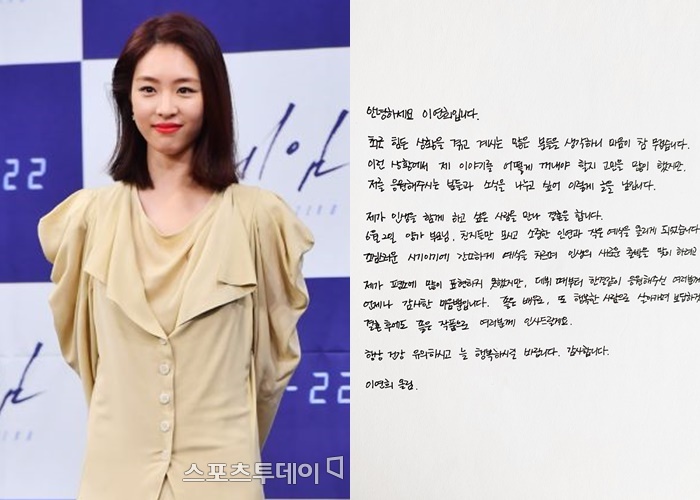 22
ZERO
-22
스포츠투데이
안녕하세요 이연희입니다.
최근 힘든 상황을 겪고 계시는 많은 분들을 생각하니 마음이 참 무겁습니다.
이런 상황에서 제 이야기를 어떻게 꺼내야 할지 고민을 많이 했지만,
저를 응원해주시는 분들과 소식을 나누고 싶어 이렇게 글을 남깁니다.
제가 인생을 함께 하고 싶은 사람을 만나 결혼을 합니다.
6월 2일 양가 부모님, 친지들만 모시고 소중한 인연과 작은 예식을 올리게 되었습니다
시기이기에 간소하게 예식을 치르며 인생의 새로운 출발을 맞이하려고
제가 평소에 많이 표현하지 못했지만, 데뷔 때부터 한결같이 응원해주신 여러분께
언제나 감사한 마음뿐입니다. 좋은 배우로, 또 행복한 사람으로 살아가며 보답하겠
결혼 후에도 좋은 작품으로 여러분께 인사드릴게요.
항상 건강 유의하시고 늘 행복하시길 바랍니다. 감사합니다.
이연희 올림.